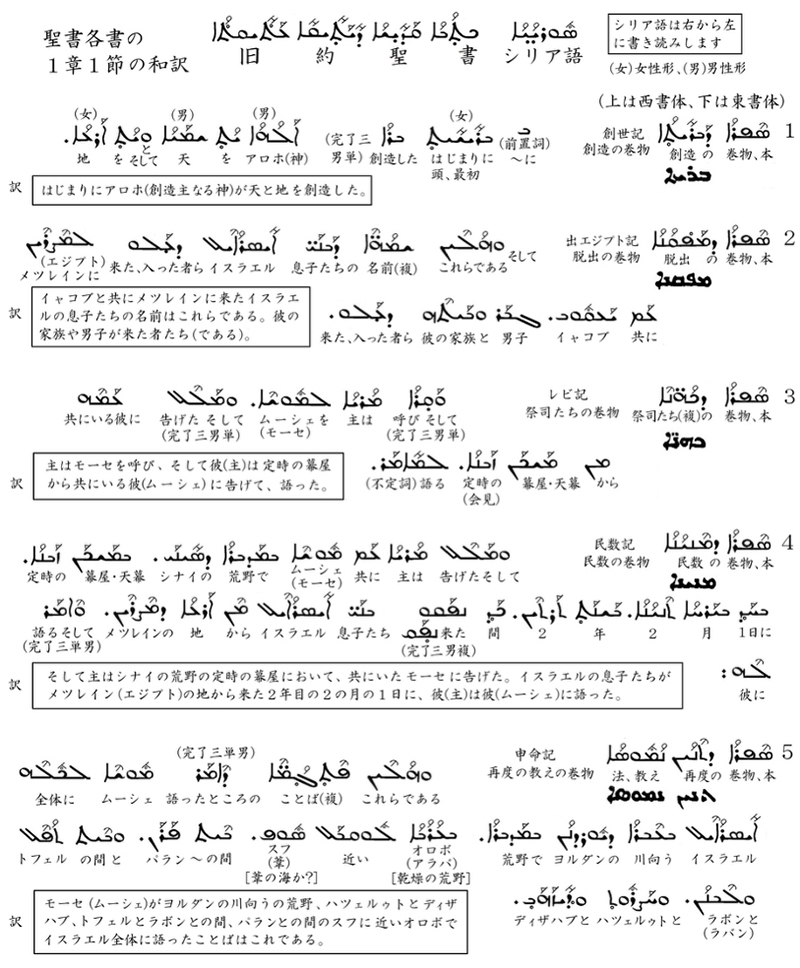 聖書各書の
1章1節の和訳
ܣܘܪܝܝܐ ܟܬܒܐ ܩܕܝܫܐ ܕܕܝܬܩܐ ܥܬܝܩܬܐ
旧 約 聖 書 シリア語
シリア語は右から左
に書き読みします
(女)女性形、(男)男性形
(上は西書体、下は東書体)
1 ܣܦܪܐ ܕܒܪܝܬܐ
創世記
創造の巻物
創造 の 巻物、本
ܒܪܝܬܐ
(女) (男) (男) (女)
ܒܪܫܝܬ ܒܪܐ ܐܠܗܐ ܝܬ ܫܡܝܐ ܘܝܬ ܐܪܥܐ.
地 を そして と 天 を アロホ(神) (完了三男単) 創造した はじまりに 頭、最初 (前置詞) 〜に
訳 はじまりにアロホ(創造主なる神)が天と地を創造した。
2 ܣܦܪܐ ܕܡܦܩܢܐ
出エジプト記
脱出の巻物
脱出 の 巻物、本
ܡܦܩܢܐ
ܘܗܠܝܢ ܫܡܗܐ ܕܒܢܝ ܐܝܣܪܐܝܠ ܕܥܠܘ ܠܡܨܪܝܢ
(エジプト) メツレインに 来た、入った者ら イスラエル 息子たちの 名前(複) これらである そして
ܥܡ ܝܥܩܘܒ. ܓܒܪ ܘܒܝܬܗ ܕܥܠܘ.
来た、入った者ら 彼の家族と 男子 イャコブ 共に
訳 イャコブと共にメツレインに来たイスラエ
ルの息子たちの名前はこれらである。彼の
家族や男子が来た者たち(である)。
3 ܣܦܪܐ ܕܟܗܢܐ
レビ記
祭司たちの巻物
祭司たち(複)の 巻物、本
ܟܗܢܐ
ܘܩܪܐ ܡܪܝܐ ܠܡܘܫܐ. ܘܡܠܠ ܥܡܗ
共にいる彼に 告げた そして (完了三男単) ムーシェを (モーセ) 主は 呼び そして (完了三男単)
ܡܢ ܡܫܟܢ ܙܒܢܐ. ܠܡܐܡܪ.
(不定詞)語る 定時の (会見) 幕屋・天幕 から
訳 主はモーセを呼び、そして彼(主)は定時の幕屋
から共にいる彼(ムーシェ)に告げて、語った。
4 ܣܦܪܐ ܕܡܢܝܢܐ
民数記
民数の巻物
民数 の 巻物、本
ܡܢܝܢܐ
ܘܡܠܠ ܡܪܝܐ ܥܡ ܡܘܫܐ ܒܡܕܒܪܐ ܕܣܝܢܝ. ܒܡܫܟܢ ܙܒܢܐ.
定時の 幕屋・天幕 シナイの 荒野で ムーシェ (モーセ) 共に 主は 告げたそして
ܒܚܕ ܒܝܪܚܐ ܬܢܝܢܐ. ܒܫܢܬ ܬܪܬܝܢ. ܟܕ ܢܦܩܘ ܒܢܝ ܐܝܣܪܐܝܠ ܡܢ ܐܪܥܐ ܕܡܨܪܝܢ. ܘܐܡܪ
語るそして (完了三単男) メツレインの 地 から イスラエル 息子たち 来た (完了三男複) 間 2 年 2 月 1日に
ܠܗ:
彼に
訳 そして主はシナイの荒野の定時の幕屋において、共にいたモーセに告げた。イスラエルの息子たちが
メツレイン(エジプト)の地から来た2年目の2の月の1日に、彼(主)は彼(ムーシェ)に語った。
5 ܣܦܪܐ ܕܬܢܝܢ ܢܡܘܣܐ
申命記
再度の教えの巻物
法、教え 再度の 巻物、本
ܬܢܝܢ ܢܡܘܣܐ
(完了三単男)
ܘܗܠܝܢ ܦܬܓܡܐ ܕܐܡܪ ܡܘܫܐ ܠܟܠܗ
全体に ムーシェ 語ったところの ことば(複) これらである
ܐܝܣܪܐܝܠ ܒܥܒܪܐ ܕܝܘܪܕܢܢ ܒܡܕܒܪܐ. ܒܥܪܒܐ ܠܘܩܒܠ ܣܘܦ. ܒܝܬ ܦܪܢ. ܘܒܝܬ ܬܦܠ
トフェル の間と パラン 〜の間 スフ (葦) [葦の海か?] 近い オロボ (アラバ) [乾燥の荒野] 荒野で ヨルダンの 川向う イスラエル
ܘܠܒܢ. ܘܚܨܪܘܬ ܘܕܝܙܗܒ.
ディザハブと ハツェルゥトと ラボンと (ラバン)
訳 モーセ(ムーシェ)がヨルダンの川向うの荒野、ハツェルゥトとディザ
ハブ、トフェルとラボンとの間、パランとの間のスフに近いオロボで
イスラエル全体に語ったことばはこれである。